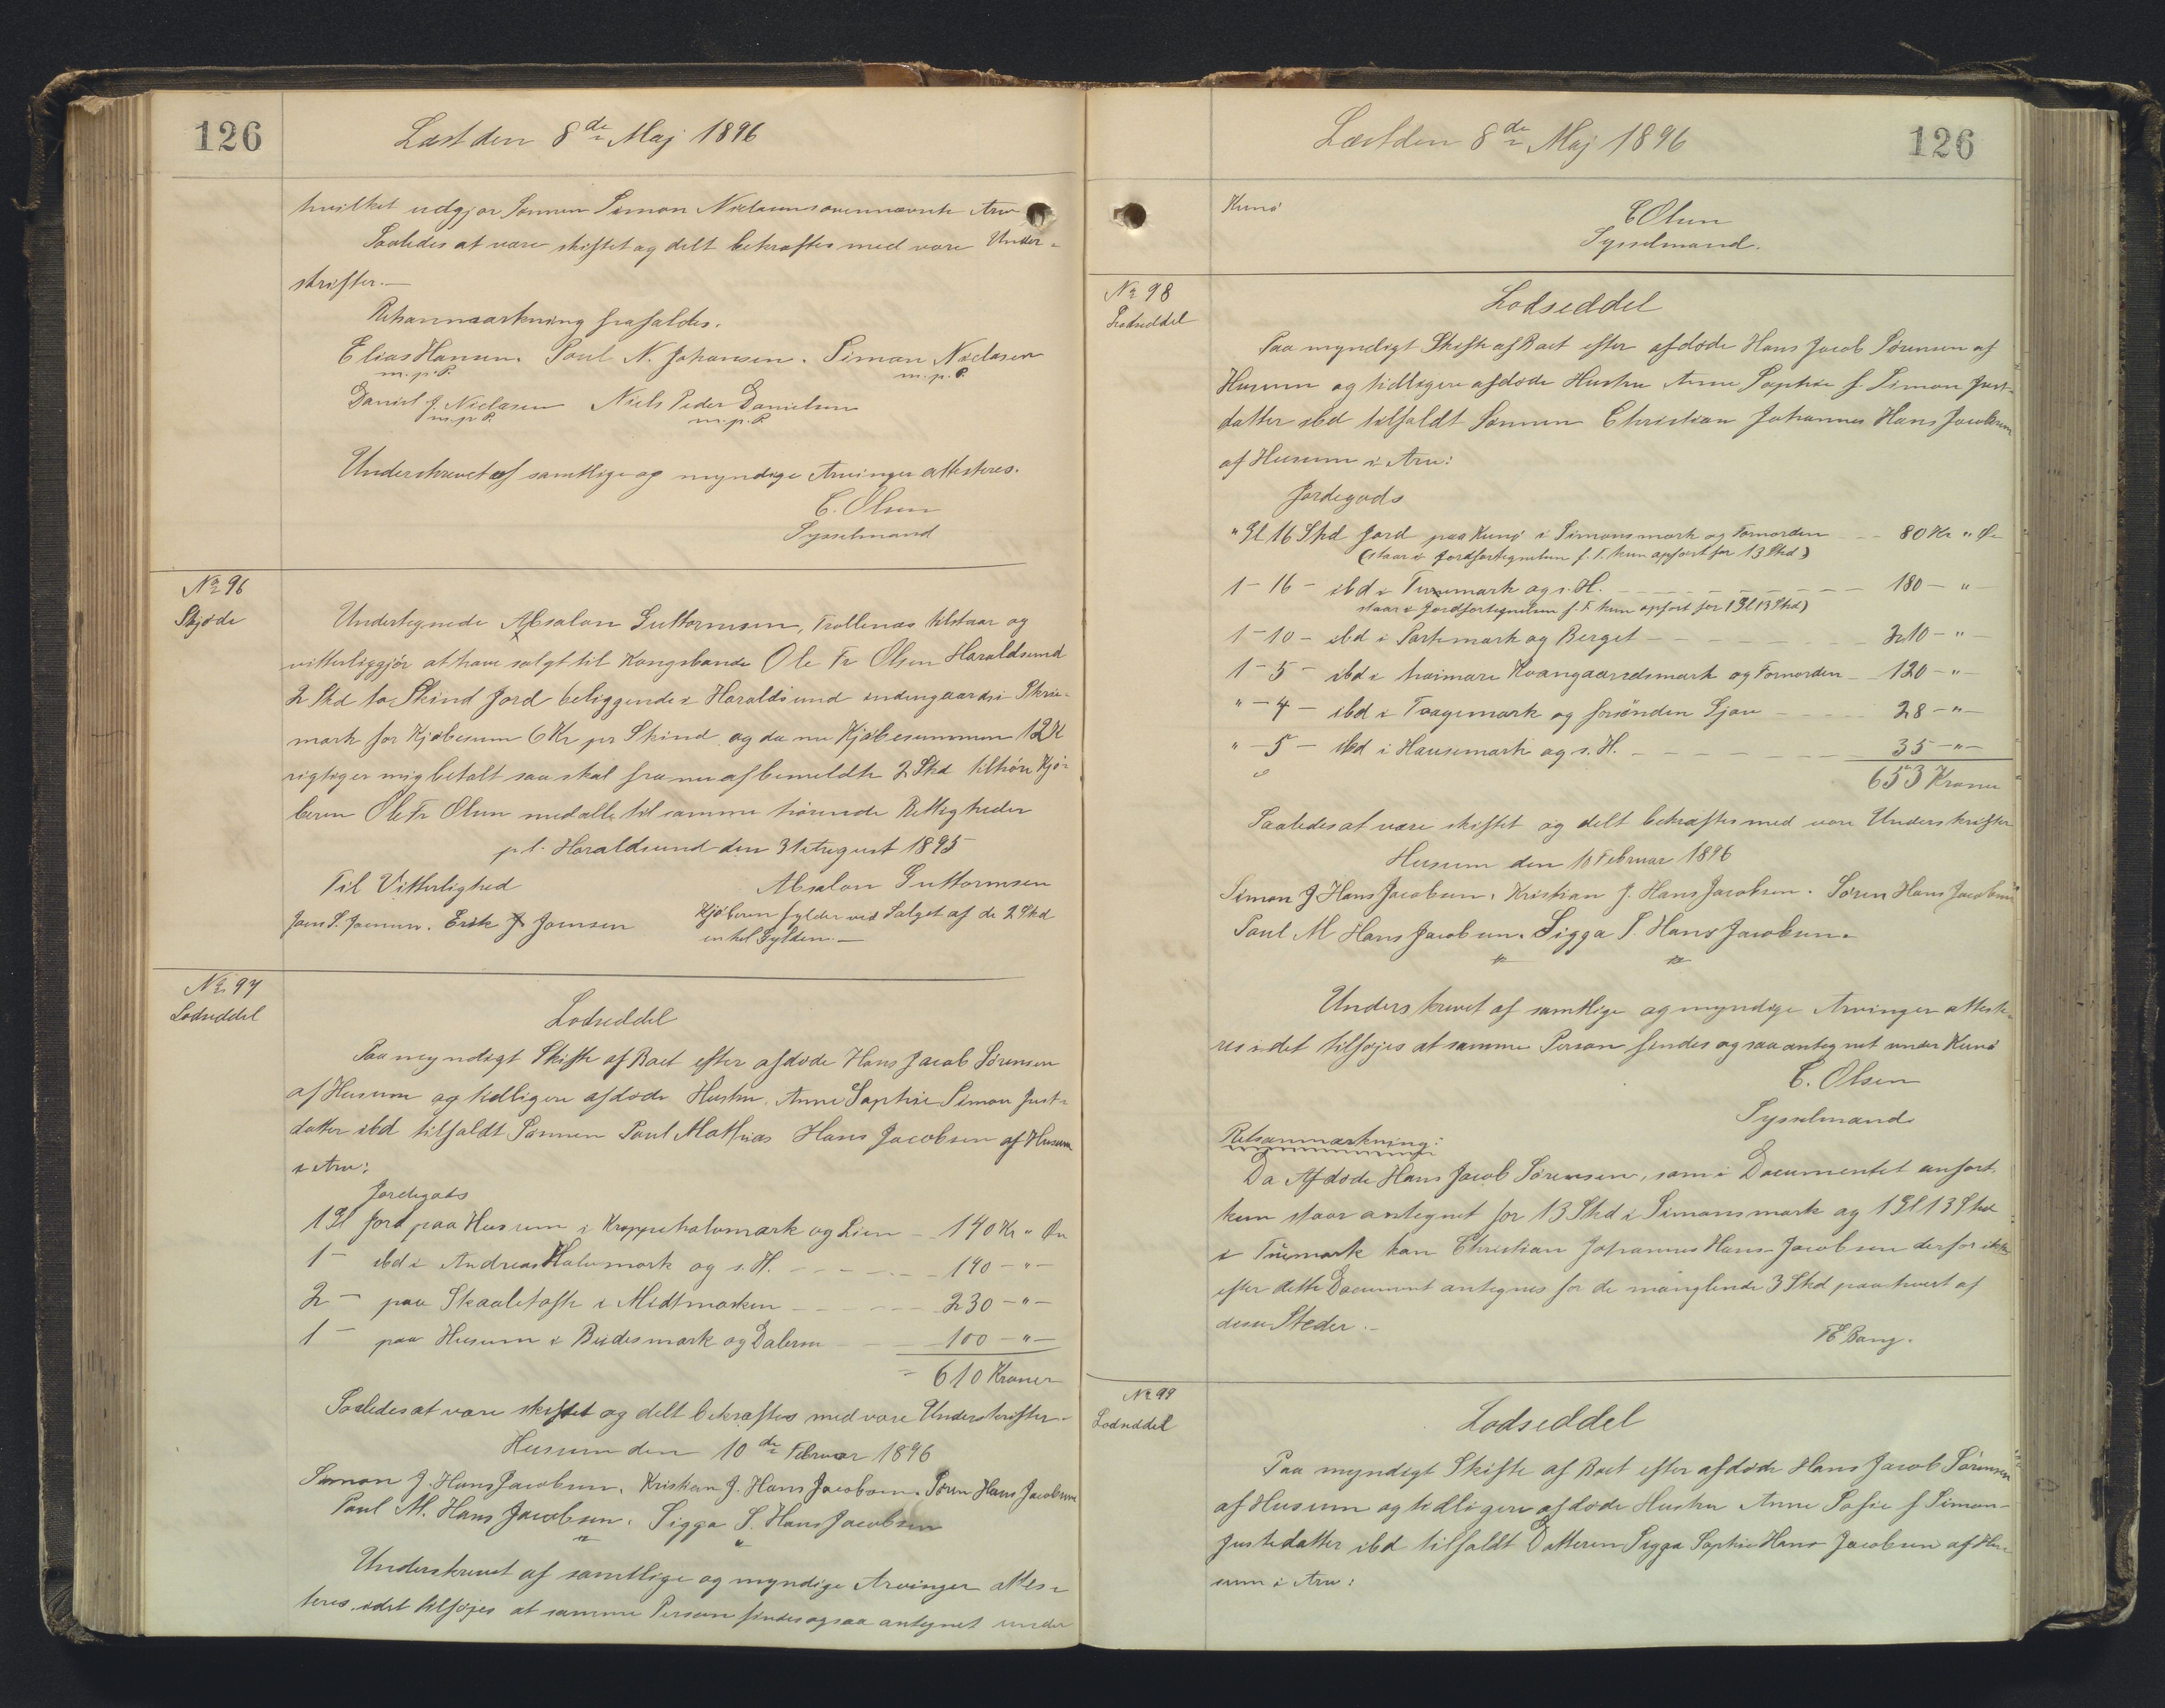 126
Læst den 8de Maj 1896
hvilket udgjør Sønnen Simon Niclasens ovennævnte Arv
Saaledes at være skiftet og delt bekræftes med vore Under-
skrifter.—
Retsanmærkning frafaldes.
Elias Hansen. Poul N. Johansen. Simon Niclasen
m.p.P. m.p.P.
Daniel J. Niclasen Niels Peder Danielsen
m.p.P. m.p.P.
Underskrevet af samtlige og myndige Arvinger attesteres.
C. Olsen
Sysselmand
No 96
Skjøde
Undertegnede Absalon Guttormsen, Trollenæs tilstaar og
vitterliggjør at have solgt til Kongsbonde Ole Fr Olsen Haraldsund
2 Skd to Skind Jord beliggende i Haraldsund indengaards i
mark for Kjøbesum 6 Kr pr Skind og da nu Kjøbesummen 12 K
rigtig er mig betalt saa skal fra nu af bemeldte 2 Skd tilhøre Kjø-
beren Ole Fr Olsen med alle til samme hørende Rettigheder
p.t. Haraldsund den 31 August 1895
Til Vitterlighed Absalon Guttormsen
Joen S. Joensen. Erik J Joensen Kjøberen fylder ved Salget af de 2 Skd
en hel Gylden.—
No 97
Lodseddel
Lodseddel
Paa myndigt Skifte af Boet efter afdøde Hans Jacob Sørensen
af Husum og tidligere afdøde Hustru Anne Sophie Simon Just-
datter ibd tilfaldt Sønnen Poul Mathias Hans Jacobsen af Husum
i Arv:
Jordegods
1 Gl Jord paa Husum i Kroppehalvmark og Lien - 140 Kr " Øre
1 - ibd i Andreas Halvmark og s. H. - 140 - " -
2 - paa Skaaletofte i Midtmarken - 230 - " -
1 - paa Husum i Budesmark og Dalerne - 100 - " -
= 610 Kroner
Saaledes at være skiftet og delt bekræftes med vore Underskrifter.
Husum den 10de Februar 1896
Simon J. HansJacobsen. Kristian J. Hans Jacobsen. Søren Hans Jacobsen
Poul M. Hans Jacobsen. Sigga S. HansJacobsen
Underskrevet af samtlige og myndige Arvinger attes-
teres, idet tilføjes at samme Person findes ogsaa antegnet under
Læst den 8de Maj 1896
126
Kunø
C Olsen
Sysselmand.
No 98
Lodseddel
Lodseddel
Paa myndigt Skifte af Boet efter afdøde Hans Jacob Sørensen af
Husum og tidligere afdøde Hustru Anne Sophie f. Simon Just-
datter ibd tilfaldt Sønnen Christian Johannes Hans Jacobsen
af Husum i Arv:
Jordegods
" Gl 16 Skd Jord paa Kunø i Simonsmark og Fornorden - - 80 Kr " Ør
(staar i Jordfortegnelsen f. T. kun opført for 13 Skd)
1 - 16 - ibd i Tuemark og s. H. - 180 - "
staar i Jordfortegnelsen f. T. kun opført for 1 Gl 13 Skd)
1 - 10 - ibd i Partmark og Berget - 210 - " -
1 - 5 - ibd i heimare Kvangaardsmark og Fornorden - 120 - " -
" - 4 - ibd i Traagemark og forsønden Ljaa - 28 - " -
" - 5 - ibd i Hausemark og s. H. - 35 - " -
653 Kroner
Saaledes at være skiftet og delt bekræftes med vore Underskrifter
Husum den 10 Februar 1896
Simon J HansJacobsen. Kristian J. HansJacobsen. Søren Hans Jacobsen
Poul M Hans Jacobsen. Sigga S. Hans Jacobsen.
Underskrevet af samtlige og myndige Arvinger atteste-
res idet tilføjes at samme Person findes ogsaa antegnet under Kunø
C. Olsen
Sysselmand
Retsanmærkning:
Da Afdøde Hans Jacob Sørensen, som i Documentet anført
kun staar antegnet for 13 Skd i Simonsmark og 1 Gl 13 Skd
i Tuemark kan Christian Johannes Hans-Jacobsen derfor ikke
efter dette Document antegnes for de manglende 3 Skd paa hvert af
disse Steder.—
TE Bang.
No 99
Lodseddel
Lodseddel
Paa myndigt Skifte af Boet efter afdøde Hans Jacob Sørensen
af Husum og tidligere afdøde Hustru Anne Sofie f Simon-
Justedatter ibd tilfaldt Datteren Sigga Sophie Hans Jacobsen af Hu-
sum i Arv: